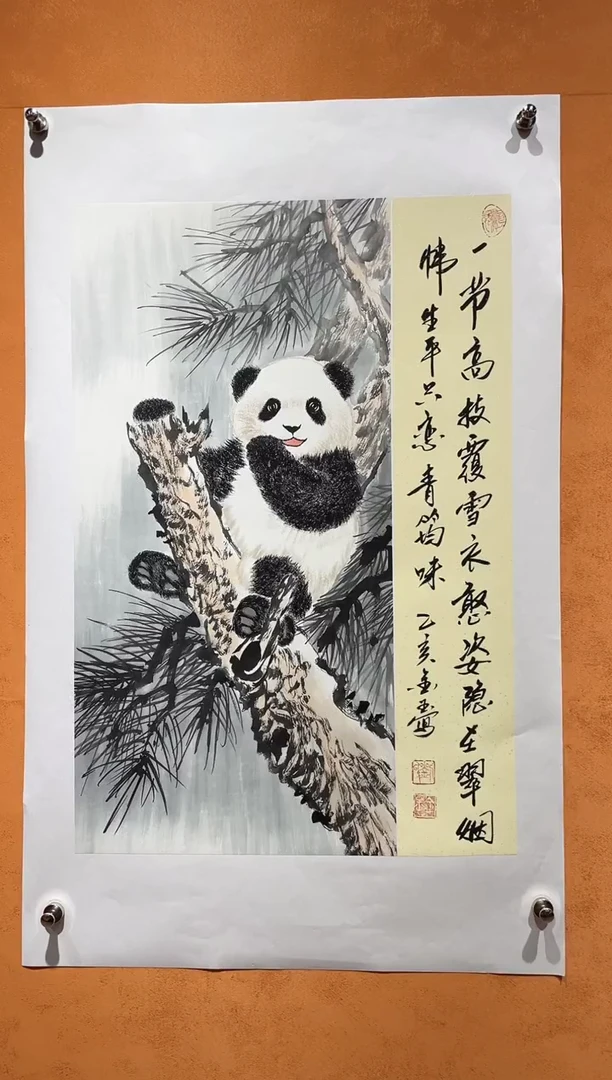 一节高枝覆雪衣憨姿隐在翠烟
幃生平只恋青筠味 乙亥金鶯